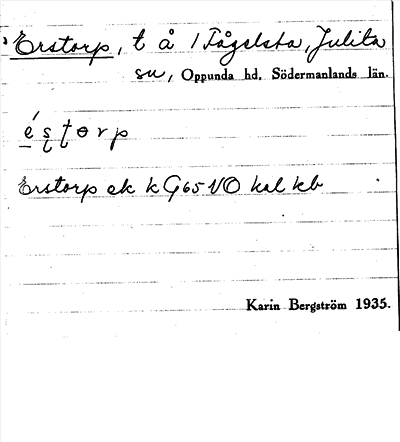 Erstorp, t å 1 Fågelsta, Julita
sn, Oppunda hd, Södermanlands län.
é s t o r p
Erstorp ek k G65 NO kal kb
Karin Bergström 1935.